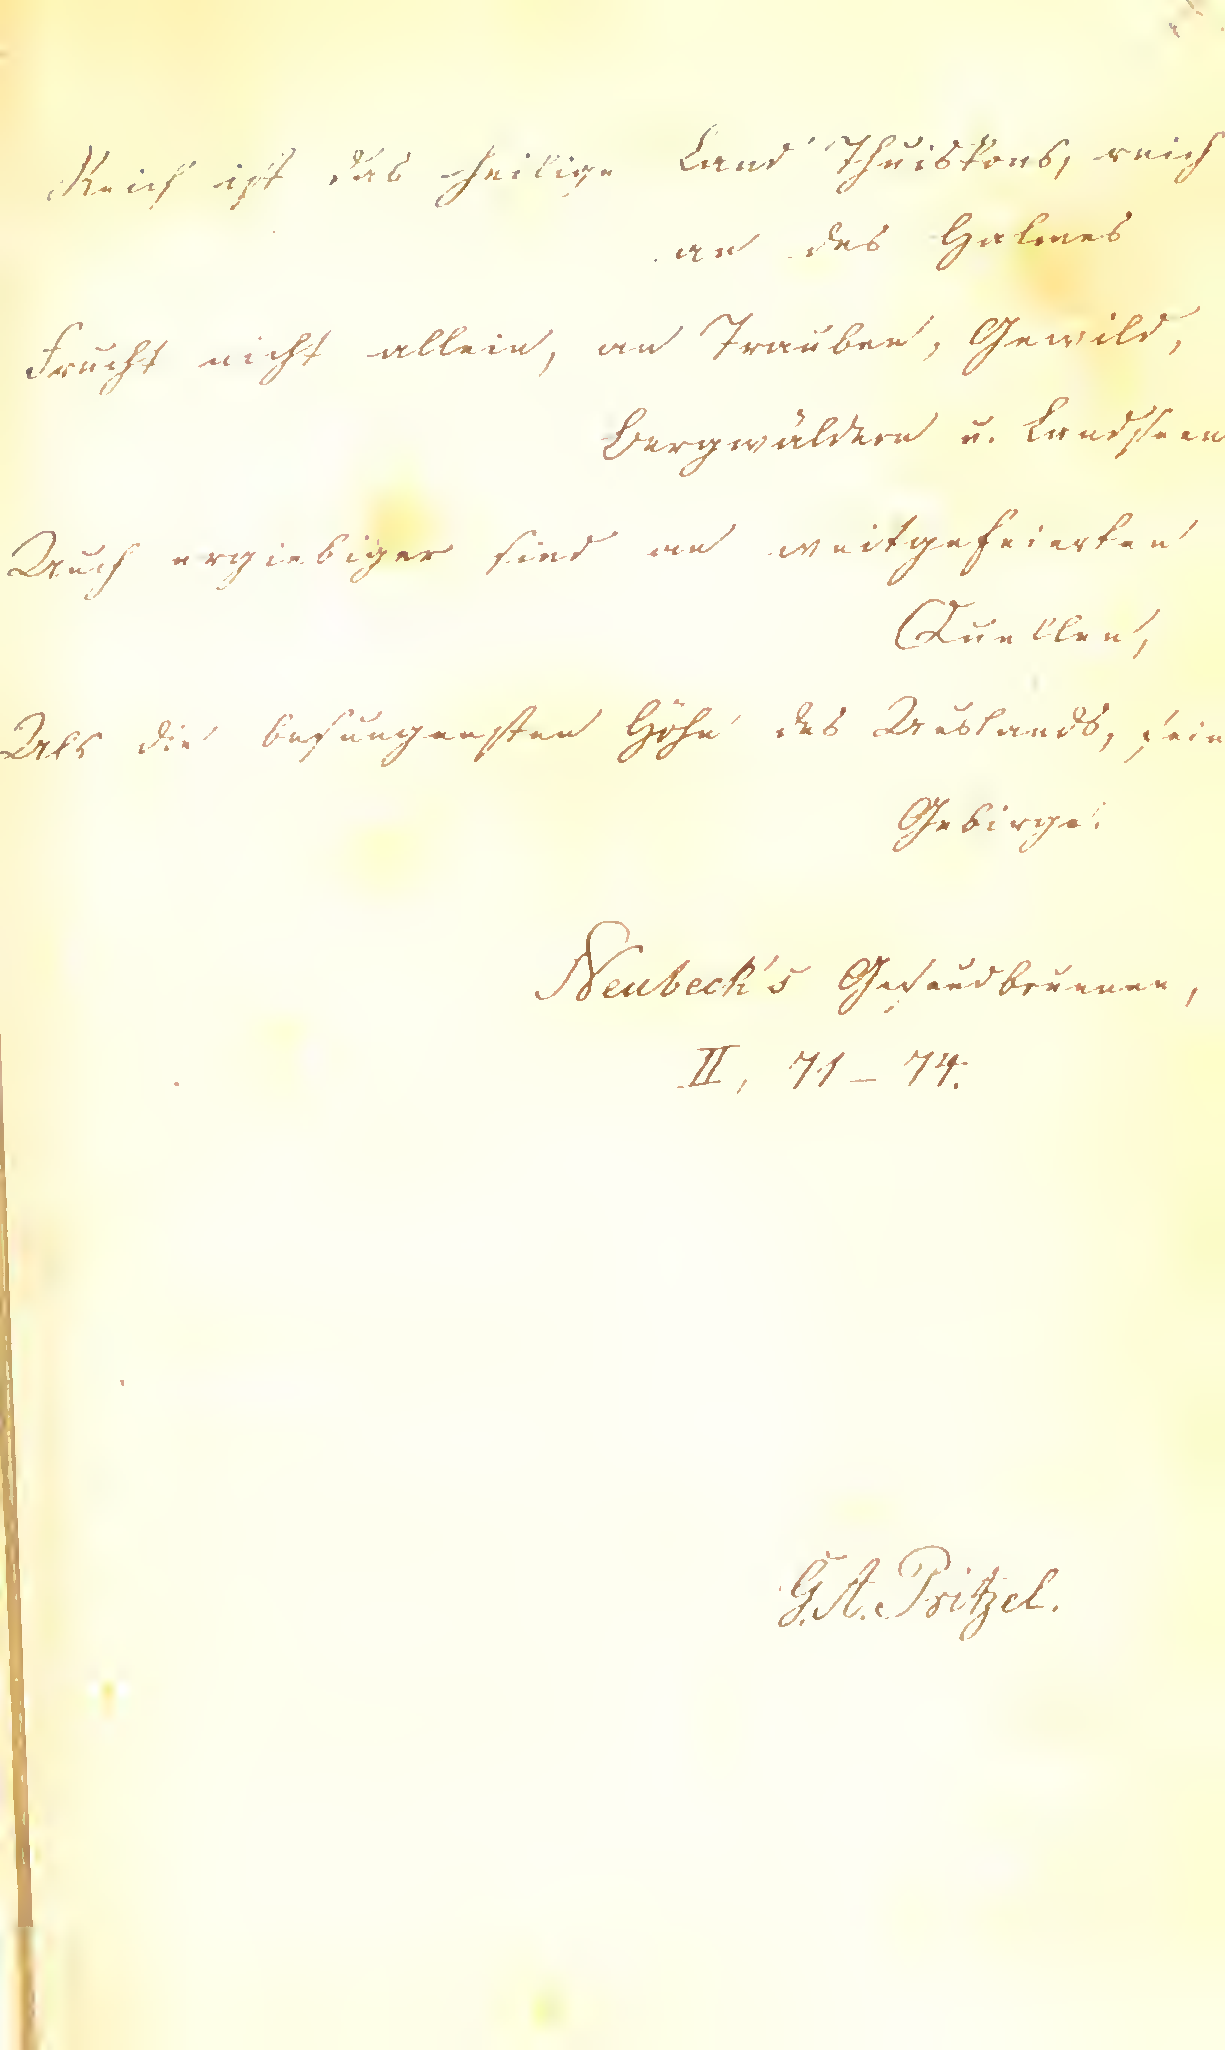 Reich ist das heilige Land Thuiskons, reich
an des Halmes
Frucht nicht allein, an Trauben, Gewild,
Bergwäldern u. Landseen
Auch ergiebiger sind an weitgefeierten
Quellen,
Als die besungensten Höhe des Auslands, sein
Gebirge.
Neubeck's Gesundbrunnen,
II, 71 – 74.
G. A. Pritzel.